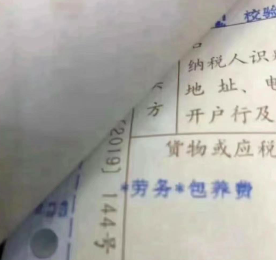 校验
纳税人识
地址、电
方
开户行及
货物或应税
*劳务*包养费
[2019] 144号